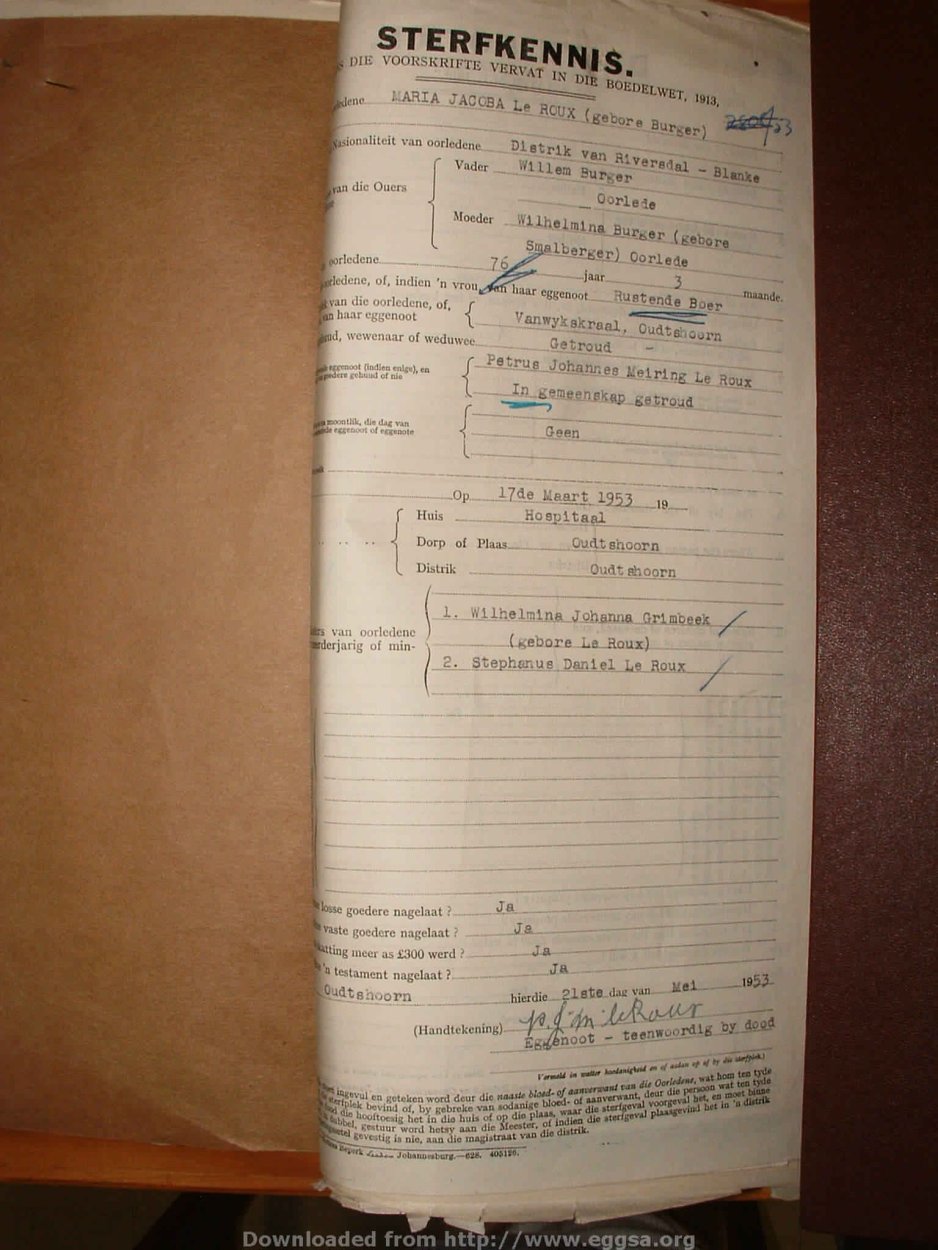 STERFKENNIS.
DIE VOORSKRIFTE VERVAT IN DIE BOEDELWET, 1913,
MARIA JACOBA Le ROUX (gebore Burger)
Nasionaliteit van oorledene Distrik van Riversdal - Blanke
van die Ouers
Vader Willem Burger
Oorlede
Moeder Wilhelmina Burger (gebore
Smalberger) Oorlede
oorledene 76 jaar 3 maande.
oorledene, of, indien 'n vrou, van haar eggenoot Rustende Boer
van die oorledene, of,
van haar eggenoot
Vanwykskraal, Oudtshoorn
wewenaar of weduwee Getroud -
eggenoot (indien enige), en
goedere gehuud of nie
Petrus Johannes Meiring Le Roux
In gemeenskap getroud
moontlik, die dag van
eggenoot of eggenote
Geen
Op 17de Maart 1953 19
Huis Hospitaal
Dorp of Plaas Oudtshoorn
Distrik Oudtshoorn
van oorledene
of min-
1. Wilhelmina Johanna Grimbeek
(gebore Le Roux)
2. Stephanus Daniel Le Roux
losse goedere nagelaat? Ja
vaste goedere nagelaat? Ja
meer as £300 werd? Ja
'n testament nagelaat? Ja
Oudtshoorn hierdie 21ste dag van Mei 1953
(Handtekening) p.j.m. leRoux
Eggenoot - teenwoordig by dood
Vermeld in watter hoedanigheid en of aadan op of by die sterfplek.)
ingevul en geteken word deur die naaste bloed- of aanverwant van die Oorledene, wat hom ten tyde
sterfplek bevind of, by gebreke van sodanige bloed- of aanverwant, deur die persoon wat ten tyde
die hooftoesig het in die huis of op die plaas, waar die sterfgeval voorgeval het, en moet binne
gestuur word hetsy aan die Meester, of indien die sterfgeval plaasgevind het in 'n distrik
gevestig is nie, aan die magistraat van die distrik.
Beperk Johannesburg.—628. 405126.
Downloaded from http://www.eggsa.org